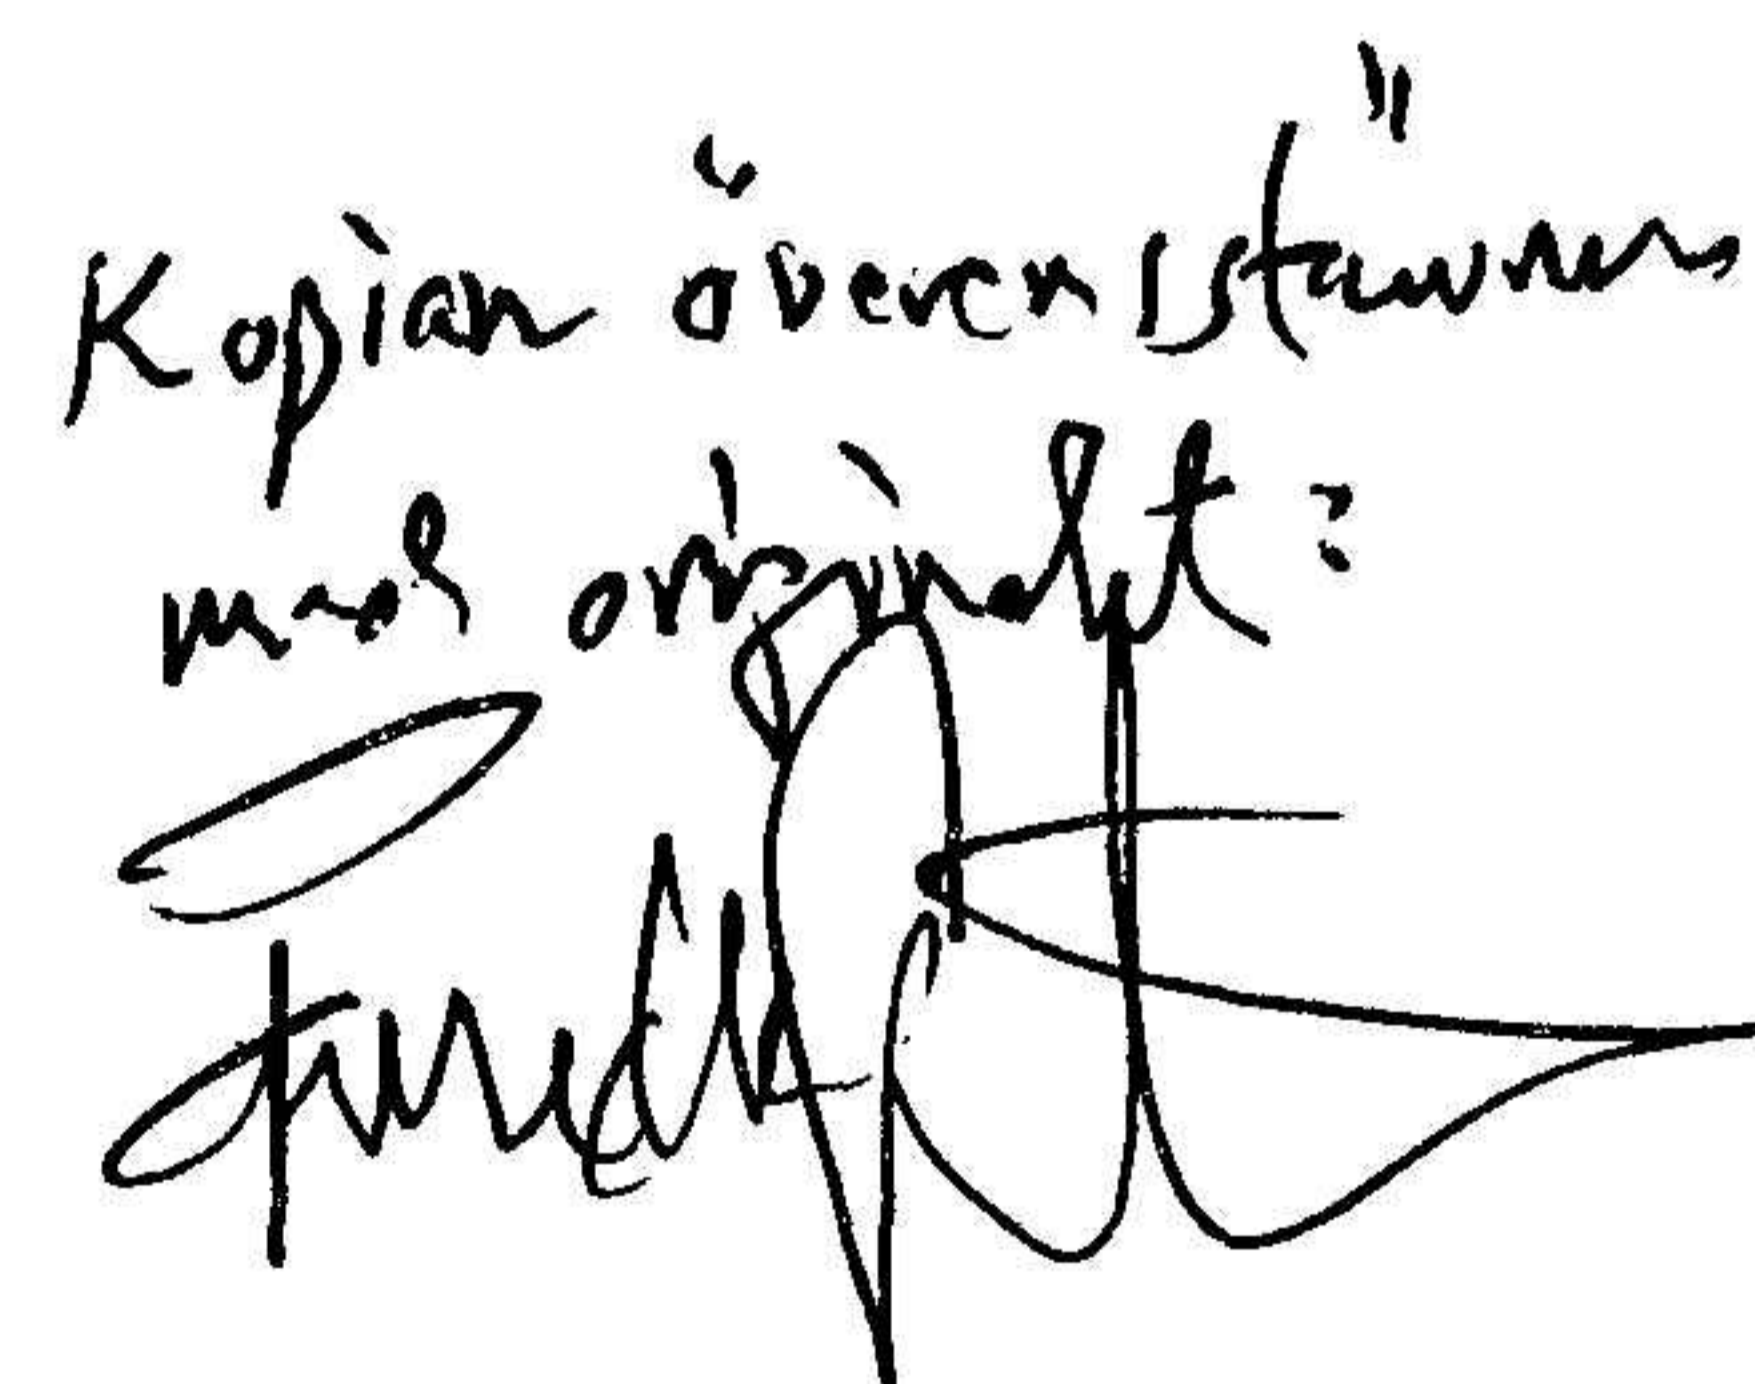 Kopian överensstämmer
med originalet: